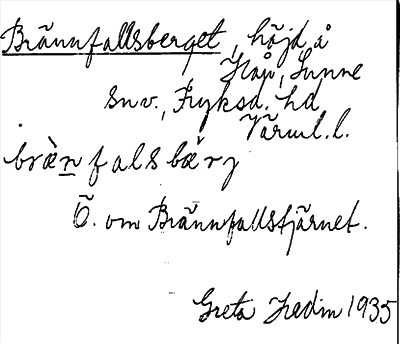 Brännfallsberget, höjd å
Häjö, Sunne
snv., Fryksd. hd
Värml. l.
bræ̀n falsbæ̀rj
Ö. om Brännfallstjärnet.
Greta Hedin 1935